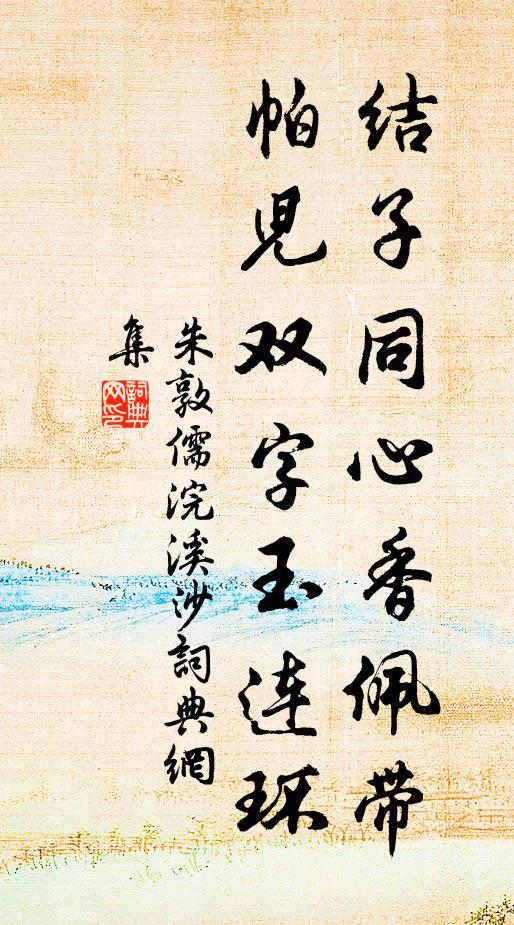 结子同心香佩带
帕儿双字玉连环
朱敦儒浣溪沙詞典網
集
詞典网印